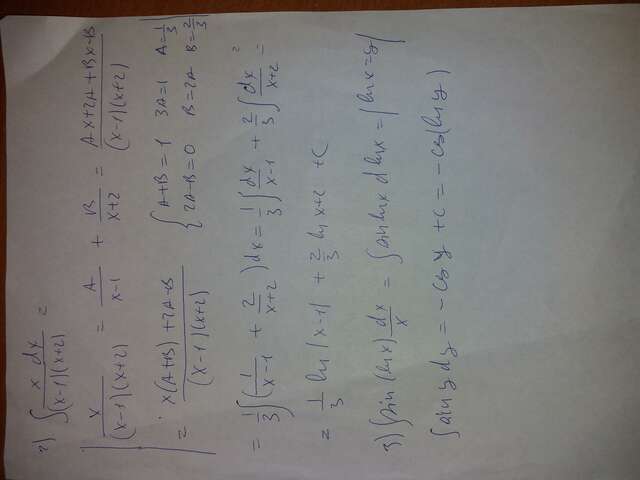 2) ∫ x dx / (x-1)(x+2) =
| x / (x-1)(x+2) = A / x-1 + B / x+2 = Ax+2A+Bx-B / (x-1)(x+2)
= x(A+B)+2A-B / (x-1)(x+2) { A+B=1 3A=1 A=1/3
2A-B=0 B=2A B=2/3 |
= 1/3 ∫ (1 / x-1 + 2 / x+2) dx = 1/3 ∫ dx / x-1 + 2/3 ∫ dx / x+2 =
= 1/3 ln|x-1| + 2/3 ln x+2 + C
3) ∫ sin(lnx) dx / x = ∫ sin lnx d lnx = | lnx=y |
∫ sin y dy = -cos y + C = -cos(ln y)